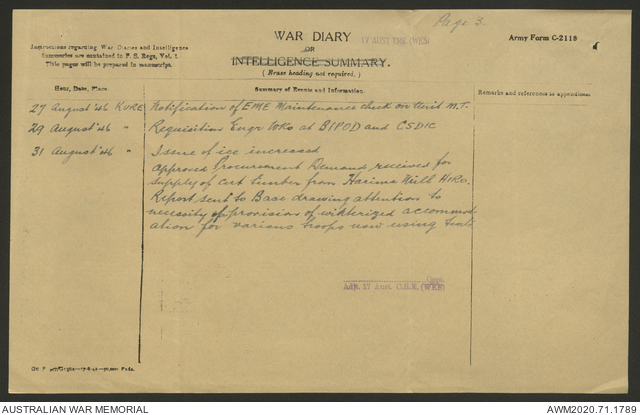 Page 3.
WAR DIARY
17 AUST CRE (WKS)
OR
Army Form C-2118
Instructions regarding War Diaries and Intelligence
Summaries are contained in F. S. Regs, Vol. 1.
Title pages will be prepared in manuscript.
INTELLIGENCE SUMMARY.
( Erase heading not required. )
Hour, Date, Place.
Summary of Events and Information.
Remarks and references to appendices.
27 August '46 KURE Notification of EME Maintenance check on Unit M.T.
29 August '46 " Requisition Engr Wks at BIPOD and CSDIC
31 August '46 " Issue of ice increased
Approved Procurement Demand received for
supply of cut timber from Harima Mill HIRO.
Report sent to Base drawing attention to
necessity of provision of winterized accommod
ation for various troops now using tents
Capt.
Adj. 17 Aust. C.R.E. (WKS)
AUSTRALIAN WAR MEMORIAL
AWM2020.71.1789